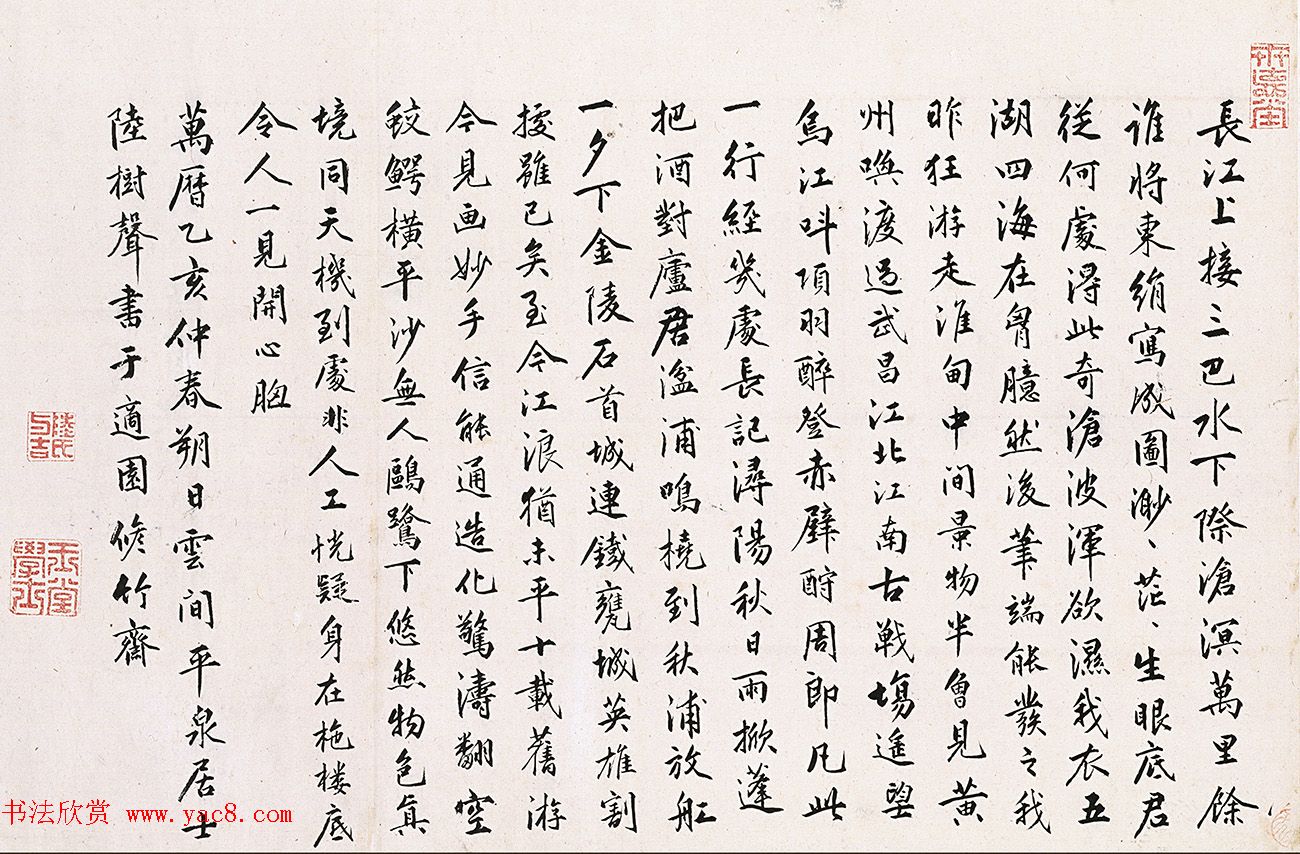 長江上接三巴水下際滄溟萬里餘
誰將東絹寫成圖渺〻茫〻生眼底君
從何處得此奇滄波渾欲濕我衣五
湖四海在胷臆然後筆端能發之我
昨狂游走淮甸中間景物半曾見黃
州喚渡過武昌江北江南古戰場遙望
烏江叫項羽醉登赤壁酹周郎凡此
一行經幾處長記潯陽秋日雨掀蓬
把酒對廬君湓浦鳴橈到秋浦放舡
一夕下金陵石首城連鐵甕城英雄割
據雖已矣至今江浪猶未平十載舊游
今見画妙手信能通造化驚濤翻空
鮫鰐橫平沙無人鷗鷺下悠然物色真
境同天機到處非人工恍疑身在柂樓底
令人一見開心胸
萬曆乙亥仲春朔日雲間平泉居士
陸樹聲書于適園脩竹齋
陸氏
与吉
玉堂
學士
书法欣赏 www.yac8.com